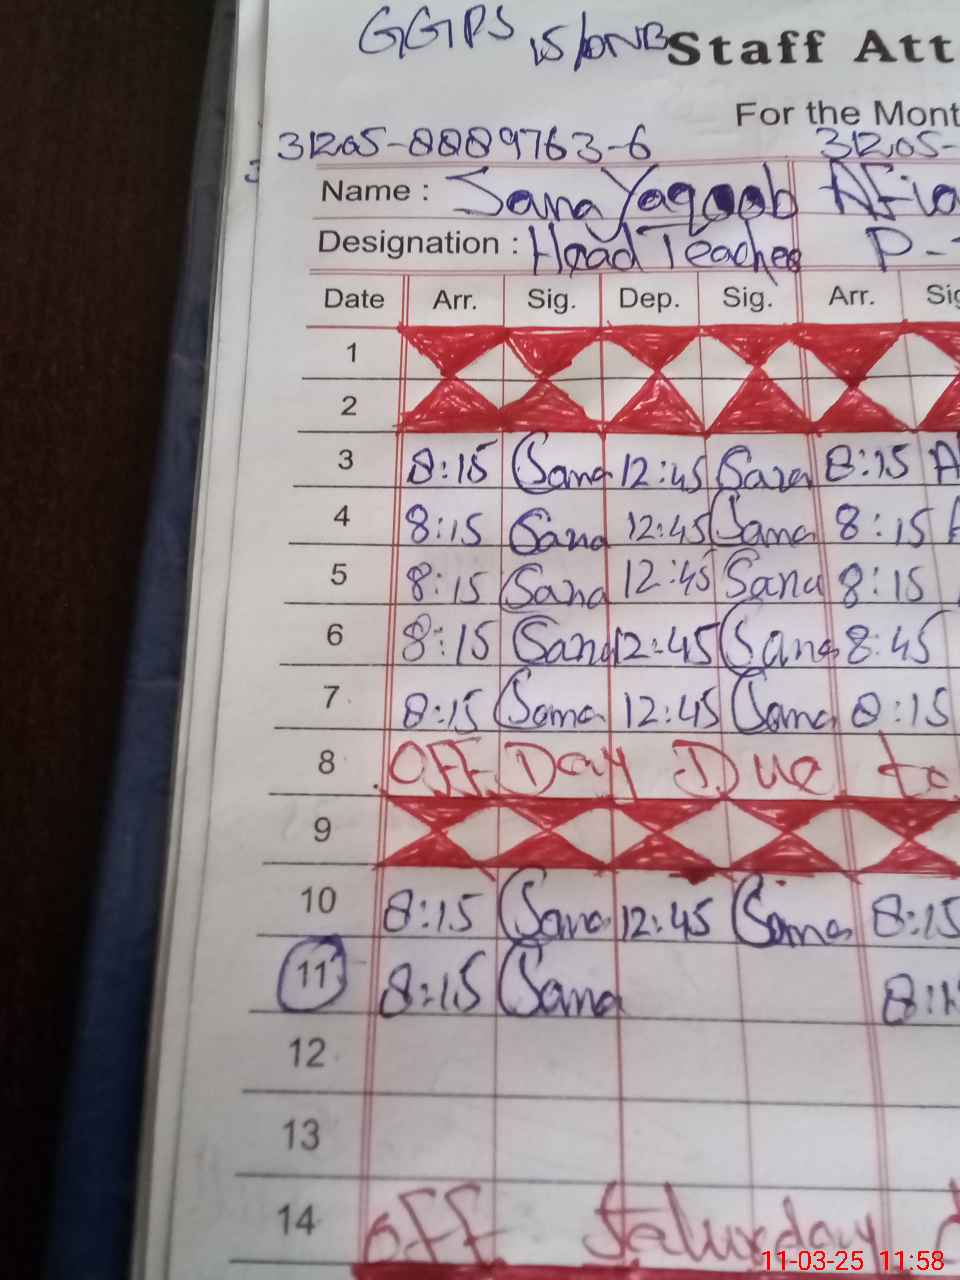 GGPS 15/DNB Staff Att
For the Mont
31205-0009763-6 31205-
Name : Sana Yaqoob Afia
Designation : Head Teacher P-
Date Arr. Sig. Dep. Sig. Arr. Sig
1
2
3 8:15 Sana 12:45 Sana 8:15 A
4 8:15 Sana 12:45 Sana 8:15 A
5 8:15 Sana 12:45 Sana 8:15
6 8:15 Sana 12:45 Sana 8:45
7 8:15 Sana 12:45 Sana 8:15
8 OFF Day Due to
9
10 8:15 Sana 12:45 Sana 8:15
11 8:15 Sana 8:1
12
13
14 OFF Saturday
11-03-25 11:58